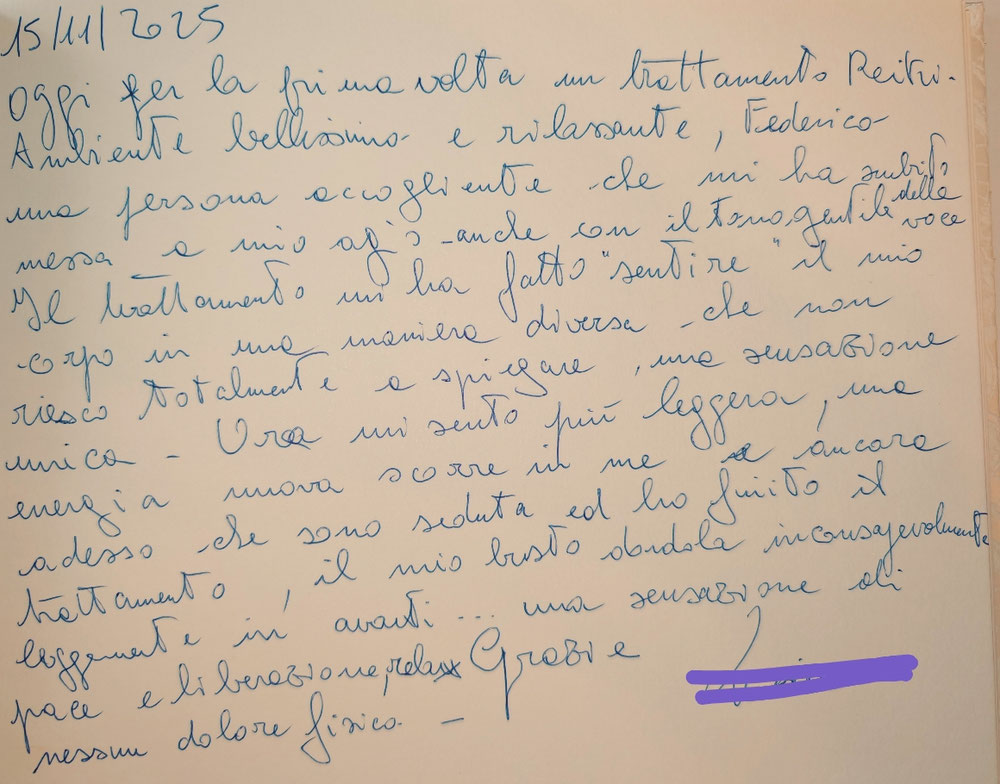 15/11/2025
Oggi per la prima volta un trattamento Reiki.
Ambiente bellissimo e rilassante, Federico
una persona accogliente che mi ha subito
messa a mio agio anche con il tono gentile della voce
Il trattamento mi ha fatto "sentire" il mio
corpo in una maniera diversa che non
riesco totalmente a spiegare, una sensazione
unica - Ora mi sento più leggera, una
energia nuova scorre in me e ancora
adesso che sono seduta ed ho finito il
trattamento, il mio busto dondola inconsapevolmente
leggermente in avanti... una sensazione di
pace e liberazione, relax Grazie
nessun dolore fisico -